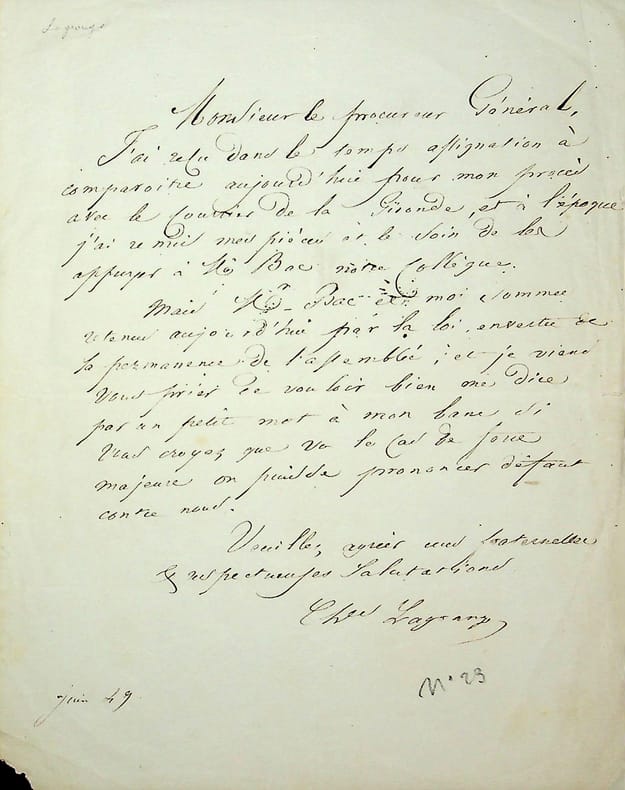 Lagrange
Monsieur le procureur Général,
J'ai reçu dans le temps assignation à
comparoitre aujourd'hui pour mon procès
avec le Courrier de la Gironde, et à l'époque
j'ai remis mes pièces et le soin de les
appuyer à Mr Bac notre Collègue.
Mais Mr Bac et moi sommes
retenus aujourd'hui par la loi, en vertu de
la permanence de l'assemblé ; et je viens
vous prier de vouloir bien me dire
par un petit mot à mon banc si
vous croyez que vu le cas de force
majeure on puisse prononcer défaut
contre nous.
Veuillez agréer mes fraternelles
& respectueuses salutations
Chles Lagrange
juin 49
N° 23